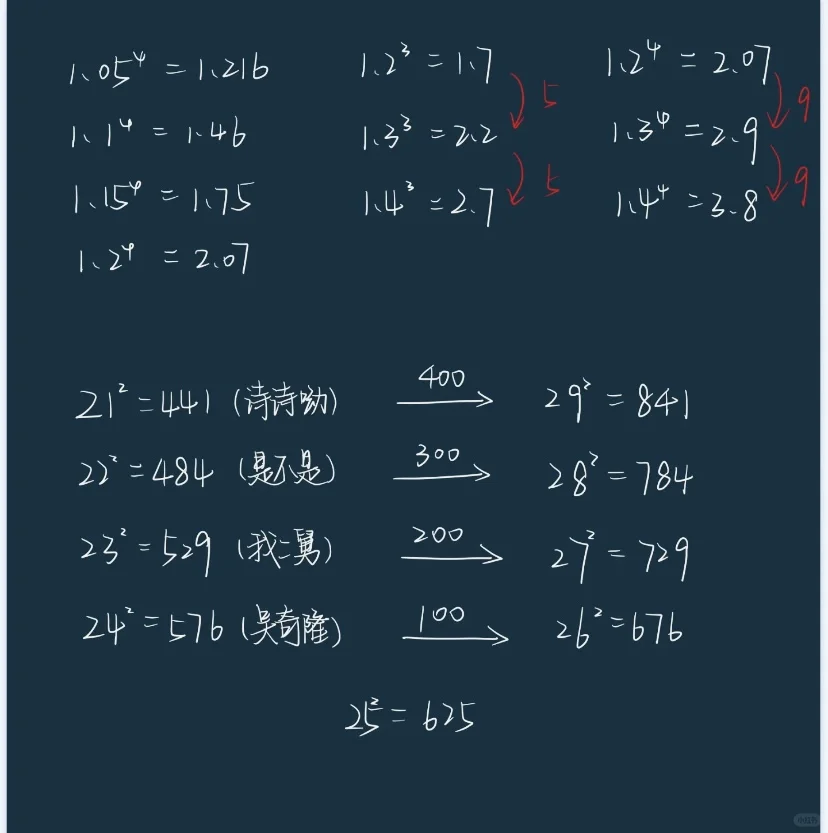 1.05⁴ = 1.216
1.1⁴ = 1.46
1.15⁴ = 1.75
1.2⁴ = 2.07
1.2³ = 1.7
1.3³ = 2.2
1.4³ = 2.7
5
5
1.2⁴ = 2.07
1.3⁴ = 2.9
1.4⁴ = 3.8
9
9
21² = 441 (诗诗呦) 400 29² = 841
22² = 484 (是不是) 300 28² = 784
23² = 529 (我二舅) 200 27² = 729
24² = 576 (吴奇隆) 100 26² = 676
25² = 625
小红书